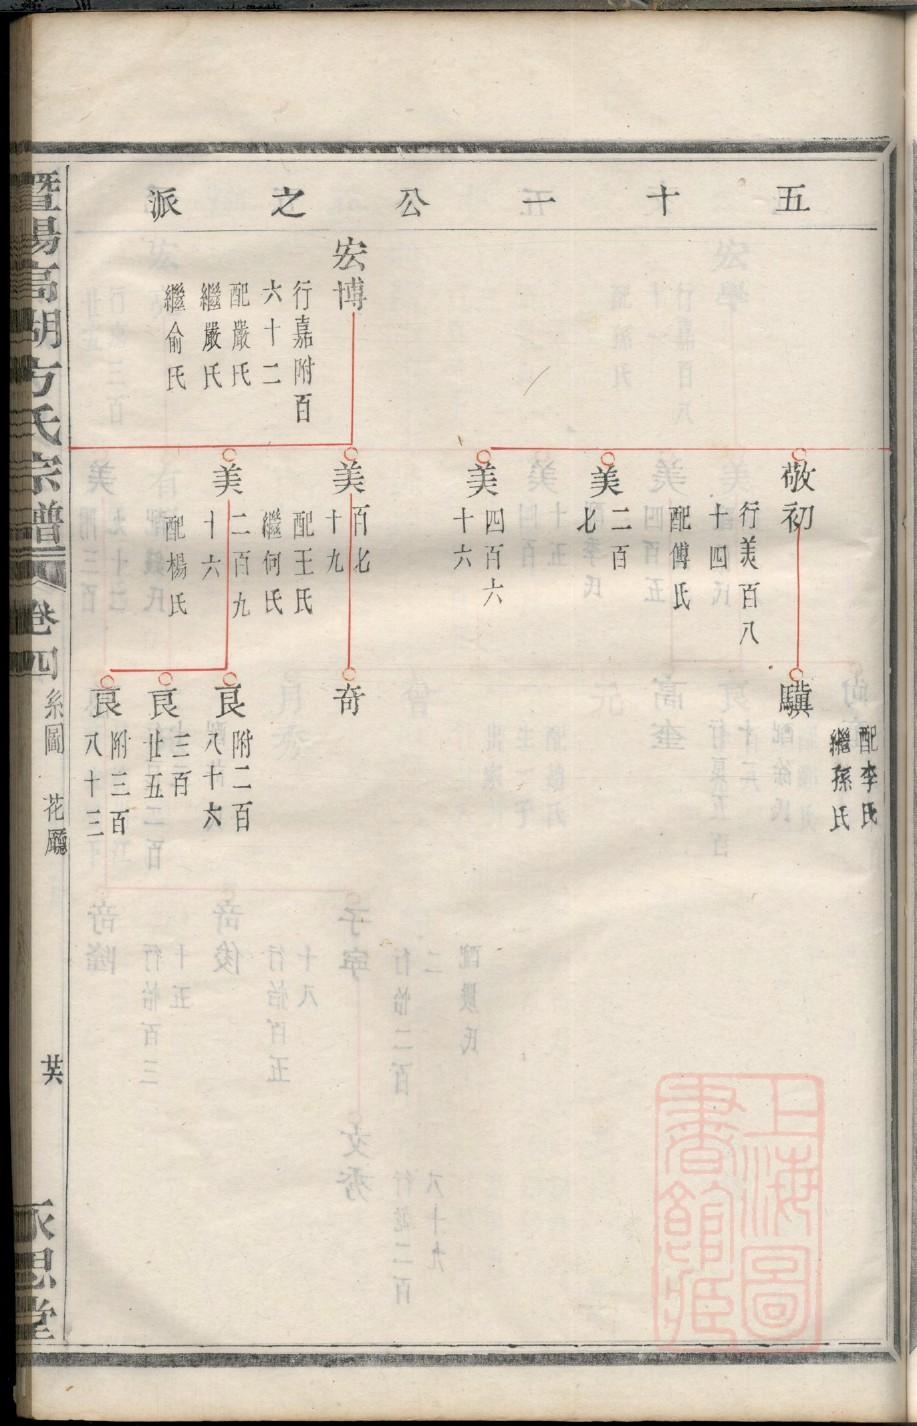 五十一公之派
宏博
行嘉附百
六十二
配嚴氏
繼嚴氏
繼俞氏
敬初
行美百八
十四
配傅氏
美
二百
七
美
四百六
十六
美
百七
十九
配王氏
繼何氏
美
二百九
十六
配楊氏
驥
配李氏
繼孫氏
奇
良
附二百
八十六
良
三百
廿五
良
附三百
八十三
暨陽高湖方氏宗譜
卷四
系圖
花廳
永思堂
上海圖書館藏